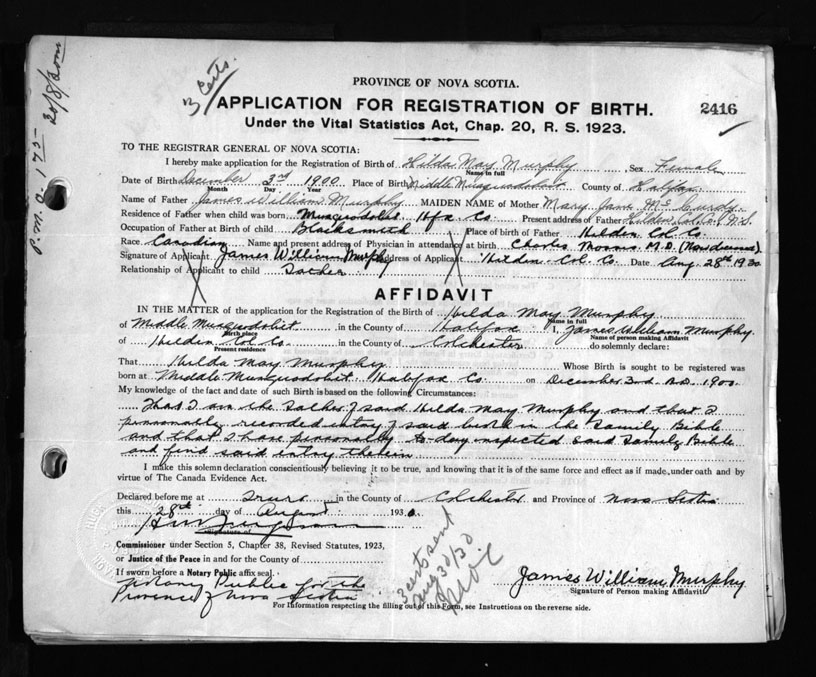 3 Certs.
P.M.O. 1.75 20/8/30
PROVINCE OF NOVA SCOTIA.
APPLICATION FOR REGISTRATION OF BIRTH. 2416
Under the Vital Statistics Act, Chap. 20, R. S. 1923.
TO THE REGISTRAR GENERAL OF NOVA SCOTIA:
I hereby make application for the Registration of Birth of Hilda May Murphy Sex Female
Name in full
Date of Birth December 3rd 1900 Place of Birth Middle Musquodoboit County of Halifax
Month Day Year
Name of Father James William Murphy MAIDEN NAME of Mother Mary Jane McCurdy
Residence of Father when child was born Musquodoboit Hfx. Co. Present address of Father Hilden Col. Co. N.S.
Occupation of Father at Birth of child Blacksmith Place of birth of Father Hilden Col. Co.
Race Canadian Name and present address of Physician in attendance at birth Charles Morris M.D. (Now deceased)
Signature of Applicant James William Murphy Address of Applicant Hilden Col. Co. Date Aug. 28th 1930
Relationship of Applicant to child Father
AFFIDAVIT
IN THE MATTER of the application for the Registration of the Birth of Hilda May Murphy
Name in full
of Middle Musquodobit in the County of Halifax I, James William Murphy
Birth place Name of person making Affidavit
of Hilden Col. Co. in the County of Colchester do solemnly declare:
Present residence
That Hilda May Murphy Whose Birth is sought to be registered was
born at Middle Musquodobit Halifax Co. on December 3rd A.D. 1900.
My knowledge of the fact and date of such Birth is based on the following Circumstances:
That I am the Father of said Hilda May Murphy and that I
personally recorded entry of said birth in the Family Bible
and that I have personally to-day inspected said Family Bible
and find said entry therein
I make this solemn declaration conscientiously believing it to be true, and knowing that it is of the same force and effect as if made under oath and by
virtue of The Canada Evidence Act.
Declared before me at Truro in the County of Colchester and Province of Nova Scotia
this 28th day of August 1930.
Signature of
Commissioner under Section 5, Chapter 38, Revised Statutes, 1923,
or Justice of the Peace in and for the County of
If sworn before a Notary Public affix seal.
Notary Public for the
Province of Nova Scotia
3 certs sent
Aug 30/30
James William Murphy
Signature of Person making Affidavit
For Information respecting the filling out of this Form, see Instructions on the reverse side.